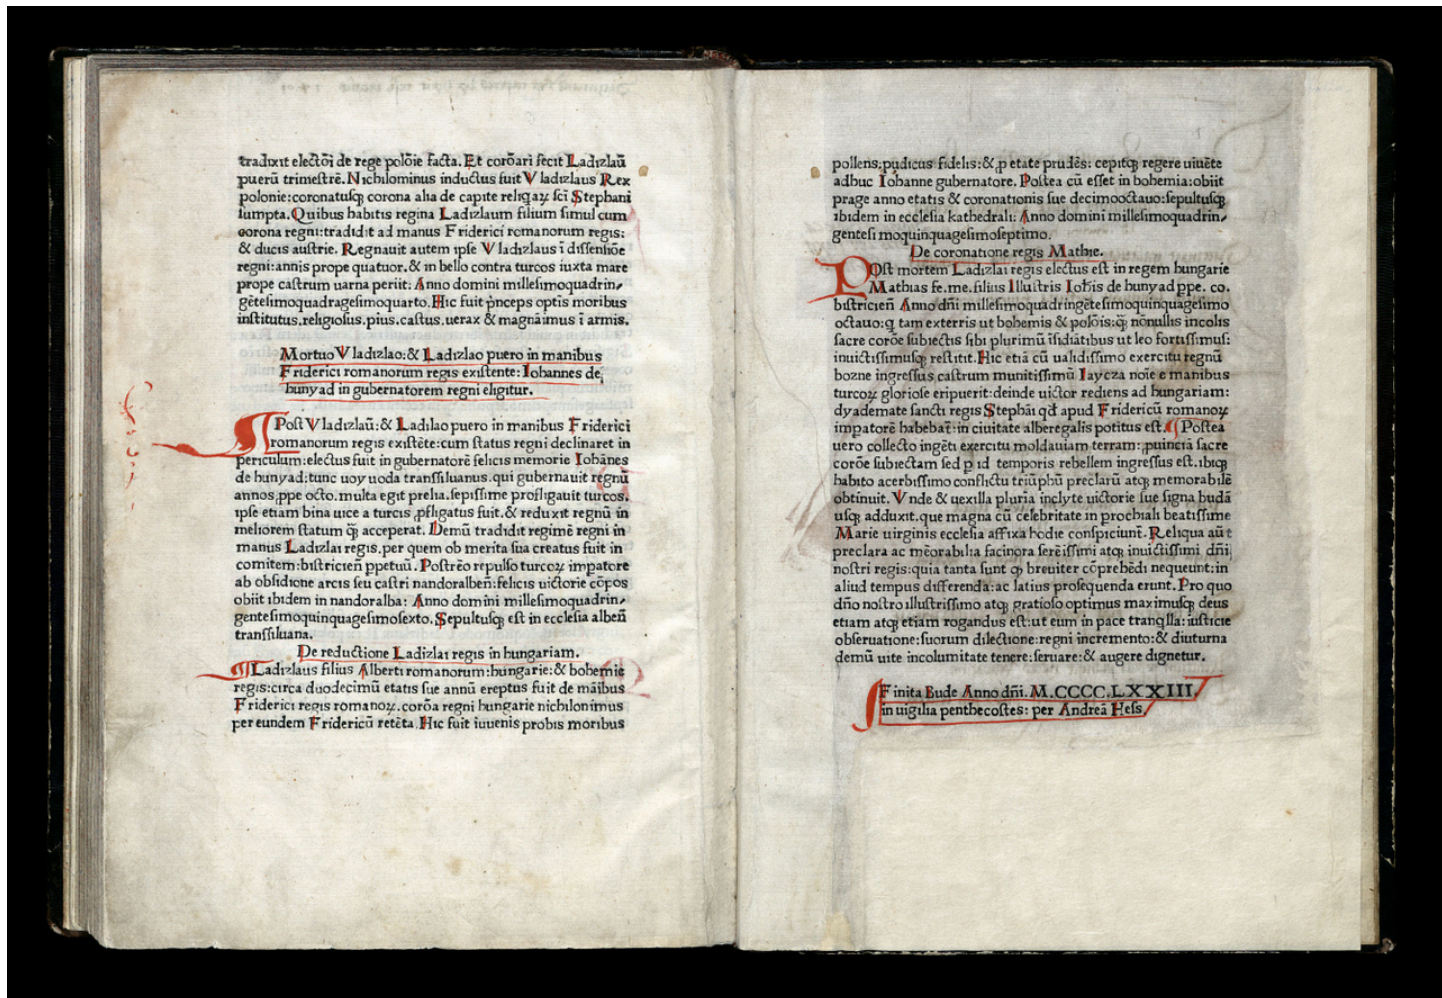 tradixit electōi de rege polōie facta. Et corōari fecit Ladizlaū
puerū trimestrē. Nichilominus inductus fuit Vladizlaus Rex
polonie: coronatusqꝫ corona alia de capite reliqaꝝ sci Stephani
sumpta. Quibus habitis regina Ladizlaum filium simul cum
corona regni: tradidit ad manus Friderici romanorum regis:
& ducis austrie. Regnauit autem ipse Vladizlaus ī dissensiōe
regni: annis prope quatuor. & in bello contra turcos iuxta mare
prope castrum uarna periit: Anno domini millesimoquadrin⸗
gētesimoquadragesimoquarto. Hic fuit p̄nceps optis moribus
institutus. religiosus. pius. castus. uerax & magnāimus ī armis.
Mortuo Vladizlao: & Ladizlao puero in manibus
Friderici romanorum regis existente: Iohannes de
hunyad in gubernatorem regni eligitur.
¶ Post Vladizlaū: & Ladilao puero in manibus Friderici
romanorum regis existēte: cum status regni declinaret in
periculum: electus fuit in gubernatorē felicis memorie Iohānes
de hunyad: tunc uoyuoda transsiluanus. qui gubernauit regnū
annos ꝓpe octo. multa egit prelia. sepissime profligauit turcos.
ipse etiam bina uice a turcis ꝓfligatus fuit. & reduxit regnū in
meliorem statum qꝫ acceperat. Demū tradidit regimē regni in
manus Ladizlai regis. per quem ob merita sua creatus fuit in
comitem: bistricieñ ppetuū. Postrēo repulso turcoꝝ impatore
ab obsidione arcis seu castri nandoralbeñ: felicis uictorie cōpos
obiit ibidem in nandoralba: Anno domini millesimoquadrin⸗
gentesimoquinquagesimosexto. Sepultusqꝫ est in ecclesia albeñ
transsiluana.
De reductione Ladizlai regis in hungariam.
¶ Ladizlaus filius Alberti romanorum: hungarie: & bohemie
regis: circa duodecimū etatis sue annū ereptus fuit de māibus
Friderici regis romanoꝝ. corōa regni hungarie nichilonimus
per eundem Fridericū retēta. Hic fuit iuuenis probis moribus
pollens: pudicus fidelis: & ꝓ etate prudēs: cepitqꝫ regere uiuēte
adhuc Iohanne gubernatore. Postea cū esset in bohemia: obiit
prage anno etatis & coronationis sue decimooctauo: sepultusqꝫ
ibidem in ecclesia kathedrali: Anno domini millesimoquadrin⸗
gentesi moquinquagesimoseptimo.
De coronatione regis Mathie.
POst mortem Ladizlai regis electus est in regem hungarie
Mathias fe. me. filius Illustris Ioħis de hunyad ppe. co.
bistricieñ Anno dñi millesimoquadringētesimoquinquagesimo
octauo: q tam exterris ut bohemis & polōis: qꝫ nōnullis incolis
sacre corōe subiectis sibi plurimū īsidiatibus ut leo fortissimus:
inuictissimusqꝫ restitit. Hic etiā cū ualidissimo exercitu regnū
bozne ingressus castrum munitissimū Iaycza noīe e manibus
turcoꝝ gloriose eripuerit: deinde uictor rediens ad hungariam:
dyademate sancti regis Stephāi qđ apud Fridericū romanoꝝ
impatorē habebat: in ciuitate alberegalis potitus est. ¶ Postea
uero collecto ingēti exercitu moldauiam terram: ꝓuinciā sacre
corōe subiectam sed p id temporis rebellem ingressus est. ibiqꝫ
habito acerbissimo conflictu triūphū preclarū atqꝫ memorabilē
obtinuit. Vnde & uexilla pluria inclyte uictorie sue signa budā
usqꝫ adduxit. que magna cū celebritate in prochiali beatissime
Marie uirginis ecclesia affixa hodie conspiciunt. Reliqua aūt
preclara ac mēorabilia facinora serēissimi atqꝫ inuictissimi dñi
nostri regis: quia tanta sunt qꝫ breuiter cōprehēdi nequeunt: in
aliud tempus differenda: ac latius prosequenda erunt. Pro quo
dño nostro illustrissimo atqꝫ gratioso optimus maximusqꝫ deus
etiam atqꝫ etiam rogandus est: ut eum in pace tranqlla: iusticie
obseruatione: suorum dilectione: regni incremento: & diuturna
demū uite incolumitate tenere: seruare: & augere dignetur.
Finita Bude Anno dñi. M.CCCC.LXXIII.
in uigilia penthecostes: per Andreā Hess.